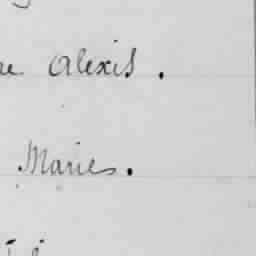 Alexis.
Maries.